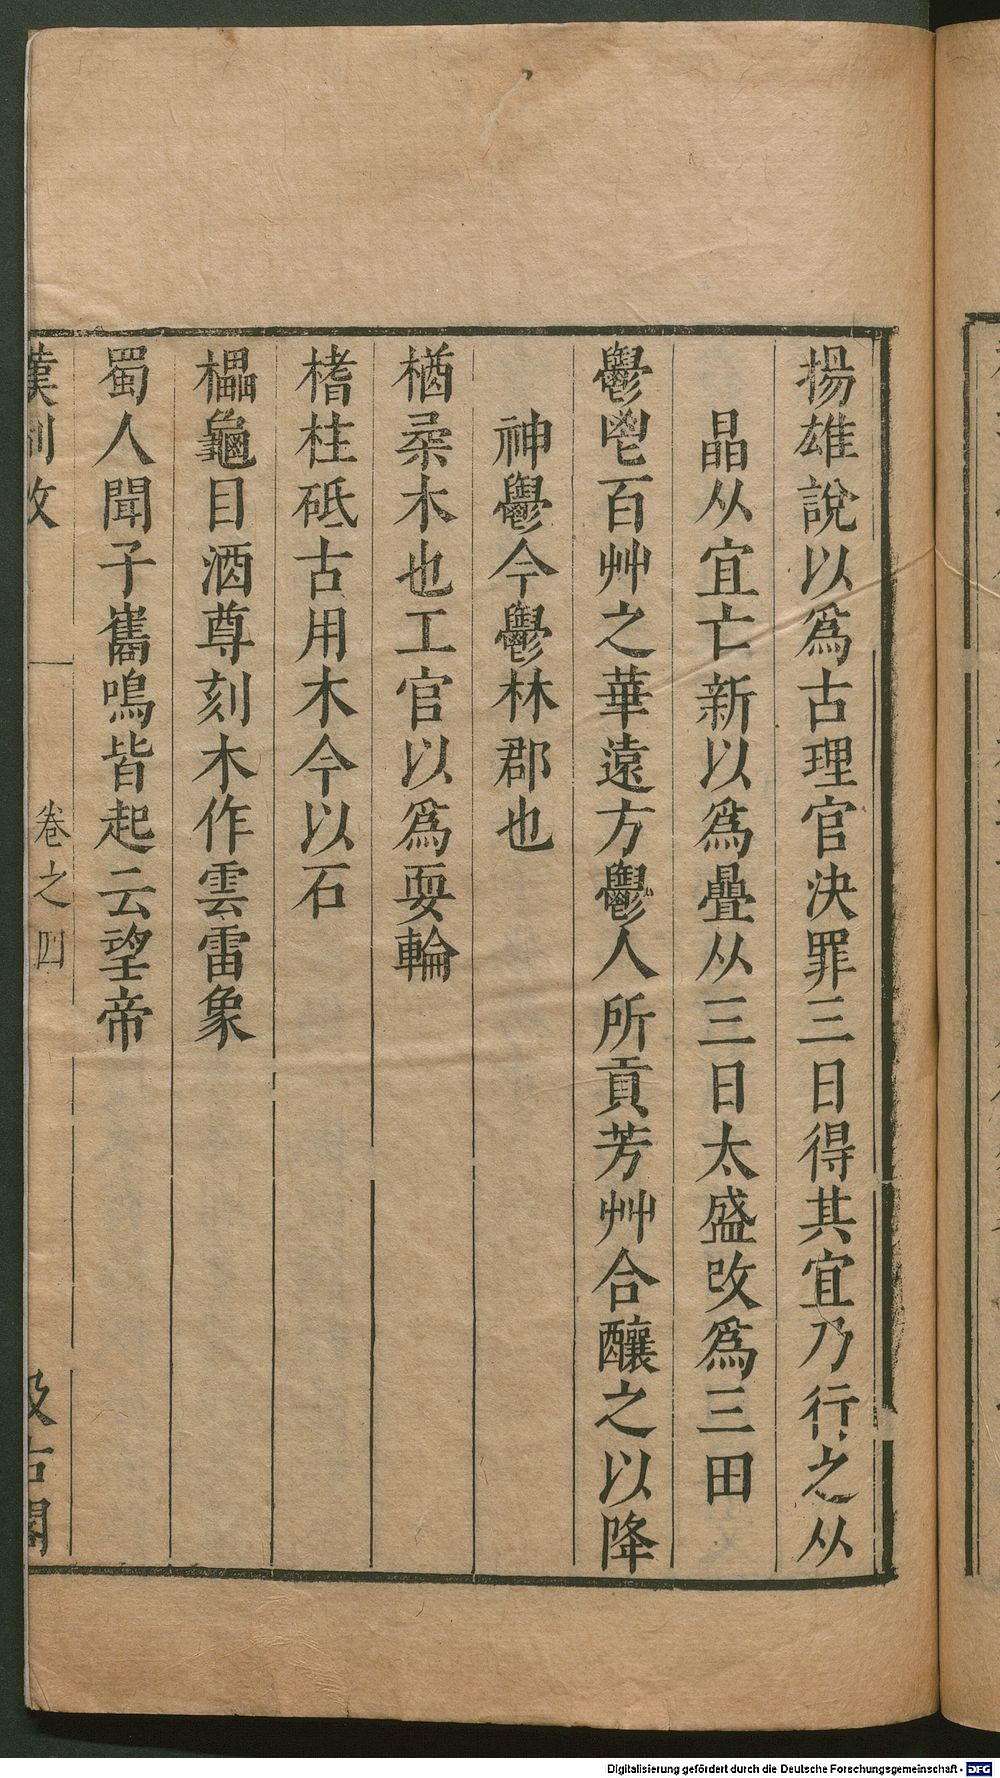 揚雄說以爲古理官決罪三日得其宜乃行之从
晶从宜亡新以爲疊从三日太盛改爲三田
鬱鬯百艸之華遠方鬱人所貢芳艸合釀之以降
神鬱今鬱林郡也
楢柔木也工官以爲耎輪
榰柱砥古用木今以石
櫑龜目酒尊刻木作雲雷象
蜀人聞子巂鳴皆起云望帝
漢制攷
卷之四
汲古閣
Digitalisierung gefördert durch die Deutsche Forschungsgemeinschaft - DFG